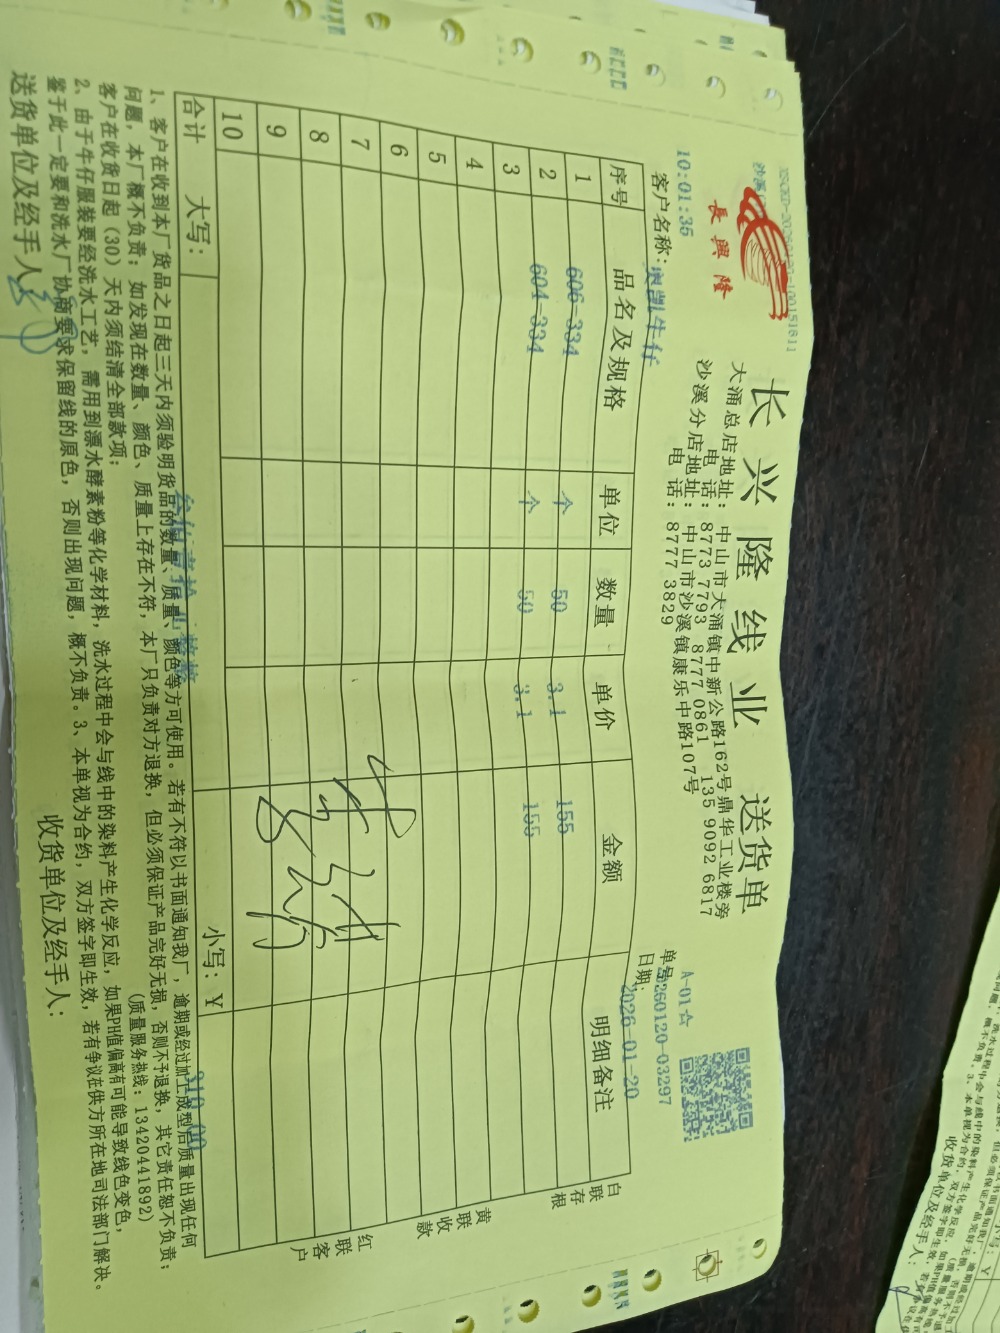 長興隆
长兴隆线业 送货单
大涌总店地址：中山市大涌镇中新公路162号鼎华工业楼旁
电话：8773 7793 8777 0861 135 9092 6817
沙溪分店地址：中山市沙溪镇康乐中路107号
电话：8777 3829
A-01☆
单号：20260120-03297
日期：2026-01-20
10:01:35
客户名称：奥凯牛仔
序号 品名及规格 单位 数量 单价 金额 明细备注
1 606-334 个 50 3.1 155
2 604-334 个 50 3.1 155
3
4
5
6
7
8
9
10
合计 大写：叁佰壹拾元整 小写：￥310.00
白联存根
黄联收款
红联客户
1、客户在收到本厂货品之日起三天内须验明货品的数量、质量、颜色等方可使用。若有不符以书面通知我厂，逾期或经过加工成型后质量出现任何
问题，本厂概不负责；如发现在数量、颜色、质量上存在不符，本厂只负责对方退换，但必须保证产品完好无损，否则不予退换，其它责任恕不负责；
客户在收货日起（30）天内须结清全部款项； （质量服务热线：13420441892）
2、由于牛仔服装要经洗水工艺，需用到漂水酵素粉等化学材料，洗水过程中会与线中的染料产生化学反应，如果PH值偏高有可能导致线色变色，
鉴于此一定要和洗水厂协商要求保留线的原色，否则出现问题，概不负责。3、本单视为合约，双方签字即生效，若有争议在供方所在地司法部门解决。
送货单位及经手人： 收货单位及经手人：